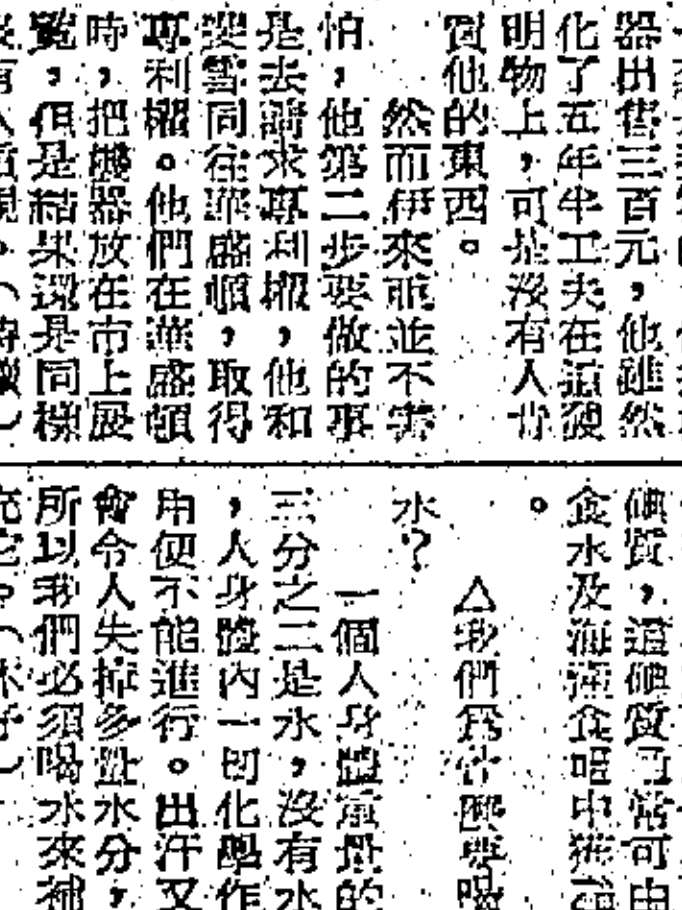 器出售三百元，他雖然
化了五年半工夫在這發
明物上，可是沒有人肯
買他的東西。
然而伊來亚並不害
怕，他第二步要做的事
是去請求專利權，他和
斐雪同往華盛頓，取得
專利權。他們在華盛頓
時，把機器放在市上展
覽，但是結果還是同樣
碘質，這碘質通常可由
食水及海洋食品中獲得
。
△我們為什麼要喝
水？
一個人身體重量的
三分之二是水，沒有水
，人身體內一切化學作
用便不能進行。出汗又
會令人失掉多量水分，
所以我們必須喝水來補